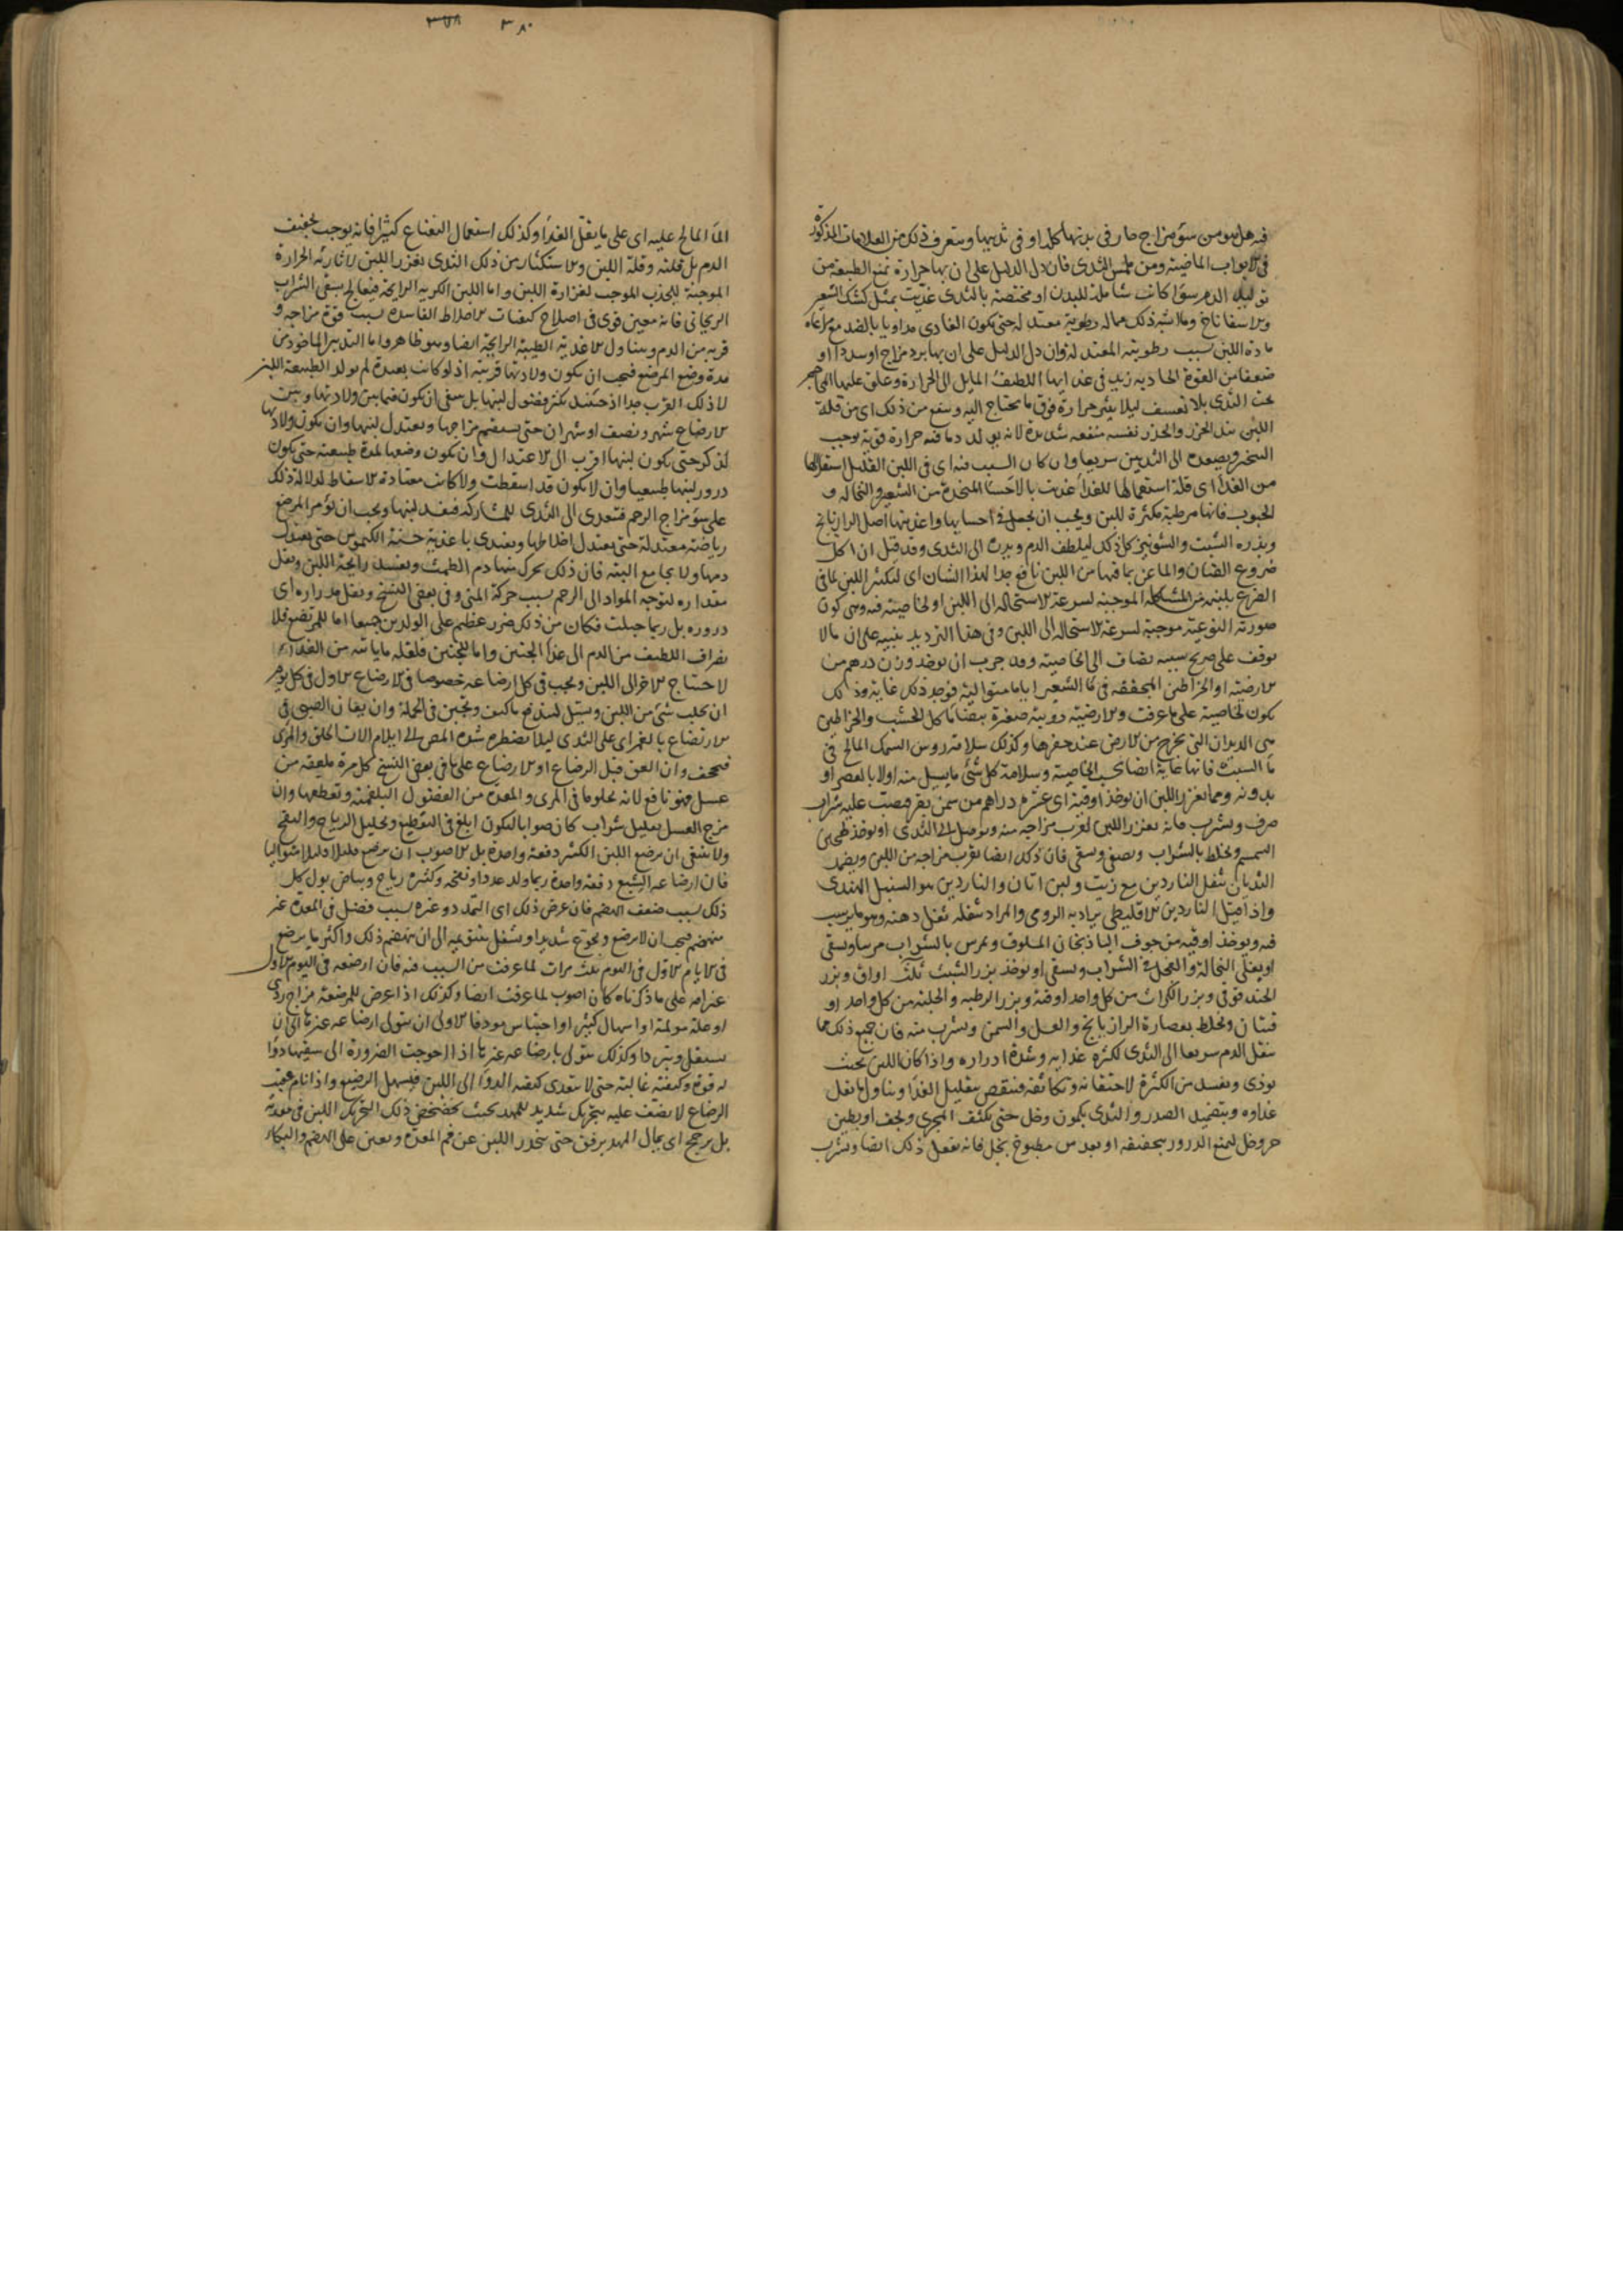 فيه هل هو من سوء مزاج حار في بدنها كله او في ثدييها ويتعرف ذلك من العلامات المذكورة
في الابواب الماضية ومن ملمس الثدى فان دل الدليل على ان بها حرارة تمنع الطبيعة من
توليد الدم سوا كانت شاملة للبدن او مختصة بالثدى غذيت بمثل كشك الشعير
والاسفاناخ وما اشبه ذلك مما له رطوبة معتدلة حتى يكون الغاذى مداويا بالضد مع مراعاة
مادة اللبن بسبب رطوبته المعتدلة وان دل الدليل على ان بها برد مزاج او سددا او
ضعفا من القوة الجاذبة زيد في غذايها اللطيف المايل الى الحرارة وعلق عليها المحاجم
تحت الثدى بلا تعنيف ليلا يثير حرارة فوق ما يحتاج اليه وينفع من ذلك اى من قلة
اللبن بذر الجزر والجزر نفسه منفعة شديدة لانه يولد دما فيه حرارة قوية يوجب
التبخر ويصعده الى الثديين سريعا وان كان السبب فيه اى في اللبن القليل استقلالها
من الغذا اى قلة استعمالها للغذا غذيت بالاحسا المتخذة من الشعير والنخالة و
الحبوب فانها مرطبة مكثرة للبن ويجب ان يجعل في احسايها واغذيتها اصل الرازيانج
وبذره الشبت والشونيز كل ذلك ليلطف الدم ويدره الى الثدى وقد قيل ان اكل
ضروع الضان والماعز بما فيها من اللبن نافع جدا لهذا الشان اى لتكثير اللبن لما في
الضرع بلبنه من المشاكلة الموجبة لسرعة الاستحالة الى اللبن او لخاصية فيه وهى كون
صورته النوعية موجبة لسرعة الاستحالة الى اللبن وفى هذا الترديد تنبيه على ان ما لا
يوقف على صريح سببه يضاف الى الخاصية وقد جرب ان يوخذ وزن درهم من
الارضية او الخراطين المجففة في ما الشعير اياما متوالية فوجد ذلك غاية وذلك
يكون لخاصية على ما عرفت والارضية دويبة صغيرة بيضا ياكل الخشب والخراطين
هى الديدان التى يخرج من الارض عند حفرها وكذلك سلاقة روس السمك المالح في
ما الشبث فانها غاية ايضا بحسب الخاصية وسلاقة كل شئ ما يسيل منه اولا بالعصر او
بدونه ومما يغزر اللبن ان يوخذ اوقية اى عشرة دراهم من سمن بقر فيصب عليه شراب
صرف ويشرب فانه يغزر اللبن لقرب مزاجه منه ويوصل الى الثدى او يوخذ طحين
السمسم ويخلط بالشراب ويصفى ويسقى فان ذلك ايضا يقرب مزاجه من اللبن ويضمد
الثديان بثفل الناردين مع زيت ولبن اتان والناردين هو السنبل الهندى
واذا قيل الناردين الاقليطى يراد به الرومى والمراد بثفله ثفل دهنه وهو ما يرسب
فيه ويوخذ اوقية من جوف الباذنجان المسلوق ويمرس بالشراب مرسا ويسقى
او يغلى النخالة والفجل في الشراب ويسقى او يوخذ بزر الشبث ثلث اواق وبزر
الحندقوقى وبزر الكراث من كل واحد اوقية وبزر الرطبة والحلبة من كل واحد او
قيتان ويخلط بعصارة الرازيانج والعسل والسمن ويشرب منه فان جميع ذلك مما
ينقل الدم سريعا الى الثدى لكثرة غذايه وشدة ادراره واذا كان اللبن بحيث
يوذى ويفسد من الكثرة لاحتقانه وتكاثفه فينقص بتقليل الغذا وبتناول ما يقل
غذاوه وبتضميد الصدر والثدى بكمون وخل حتى يكثف المجرى ويجف او بطين
حر وخل ليمنع الدرور بتجفيفه او بعدس مطبوخ بخل فانه يفعل ذلك ايضا ويشرب
٣٨٠ ٣٧٨
الما المالح عليه اى على ما يقل الغذا وكذلك استعمال النعناع كثيرا فانه يوجب تجفيف
الدم بل قلته وقلة اللبن والاستكثار من ذلك الثدى يغزر اللبن لاثارته الحرارة
الموجبة للجذب الموجب لغزارة اللبن واما اللبن الكريه الرايحة فيعالج بسقى الشراب
الريحانى فانه معين قوى في اصلاح كيفيات الاخلاط الفاسدة بسبب قوة مزاجه و
قربه من الدم وبتناول الاغذية الطيبة الرايحة ايضا وهو ظاهر واما التدبير الماخوذ من
مدة وضع المرضع فيجب ان يكون ولادتها قريبة اذ لو كانت بعيدة لم يولد الطبيعة اللبن
لا ذلك القرب جدا اذ حينئذ يكثر فضول لبنها بل ينبغى ان يكون فيما بين ولادتها وبين
الارضاع شهر ونصف او شهران حتى يستقيم مزاجها ويعتدل لبنها وان يكون ولادتها
لذكر حتى يكون لبنها اقرب الى الاعتدال وان يكون وضعها لمدة طبيعية حتى يكون
درور لبنها طبيعيا وان لا يكون قد اسقطت ولا كانت معتادة الاسقاط لدلالة ذلك
على سوء مزاج الرحم فيتعدى الى الثدى للمشاركة فيفسد لبنها ويجب ان تومر المرضع
رياضة معتدلة حتى يعتدل اخلاطها ويغتذى باغذية حسنة الكيموس حتى يعتدل
دمها ولا يجامع البتة فان ذلك يحرك منها دم الطمث ويفسد رايحة اللبن ويقل
مقداره لتوجه المواد الى الرحم بسبب حركة المنى وفى بعض النسخ ويقل مدراره اى
دروره بل ربما حبلت فكان من ذلك ضرر عظيم على الولدين جميعا اما للمرتضع فلا
نصراف اللطيف من الدم الى غذا الجنين واما للجنين فلقلة ما ياتيه من الغذا
لاحتياج الاخر الى اللبن ويجب في كل ارضاعه خصوصا في الارضاع الاول في كل يوم
ان يحلب شئ من اللبن ويسيل ليندفع ما كيف ويجبن في الحملة وان يعان الصبى في
الارتضاع بالغمز اى على الثدى ليلا يضطره شدة المص الى ايلام الات الحلق والمرى
فيجحف وان العق قبل الرضاع او الارضاع على ما في بعض النسخ كل مرة ملعقة من
عسل فهو نافع لانه يجلو ما في المرى والمعدة من الفضول البلغمية ويقطعها وان
مزج العسل بقليل شراب كان صوابا ليكون ابلغ في التقطيع وتحليل الرياح والنفخ
ولا ينبغى ان يرضع اللبن الكثير دفعة واحدة بل الاصوب ان يرضع قليلا قليلا متواليا
فان ارضاعه الشبع دفعة واحدة ربما ولد تمددا ونفخة وكثرة رياح وبياض بول كل
ذلك بسبب ضعف الهضم فان عرض ذلك اى التمدد وغيره بسبب فضل في المعدة غير
منهضم فيجب ان لا يرضع ويجوع شديدا ويشغل بتنويمه الى ان ينهضم ذلك واكثر ما يرضع
في الايام الاول في اليوم ثلث مرات لما عرفت من السبب فيه فان ارضعه في اليوم الاول
غير امه على ما ذكرناه كان اصوب لما عرفت ايضا وكذلك اذا عرض للمرضعة مزاج ردى
او علة مولمة او اسهال كثير او احتباس موذ فالاولى ان يتولى ارضاعه غيرها الى ان
يستقل ويبردا وكذلك يتولى بارضاعه غيرها اذا احوجت الضرورة الى سقيها دوا
له قوة وكيفية غالبة حتى لا يتعدى كيفية الدوا الى اللبن فيسهل الرضيع واذا نام عقيب
الرضاع لا يعنف عليه بتحريك شديد للمهد بحيث يخضخض ذلك التحريك اللبن في معدته
بل يرجح اى يمال المهد برفق حتى ينحدر اللبن عن فم المعدة ويعين على الهضم والبكا